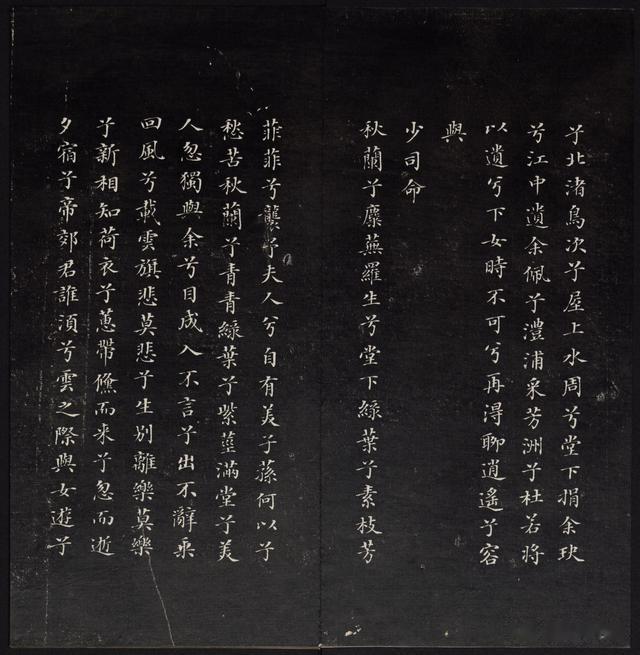 兮北渚鳥次兮屋上水周兮堂下捐余玦
兮江中遺余佩兮澧浦采芳洲兮杜若將
以遺兮下女時不可兮再得聊逍遙兮容
與
少司命
秋蘭兮麋蕪羅生兮堂下綠葉兮素枝芳
菲菲兮襲予夫人兮自有美子蓀何以兮
愁苦秋蘭兮青青綠葉兮紫莖滿堂兮美
人忽獨與余兮目成入不言兮出不辭乘
回風兮載雲旗悲莫悲兮生別離樂莫樂
兮新相知荷衣兮蕙帶儵而来兮忽而逝
夕宿兮帝郊君誰須兮雲之際與女遊兮